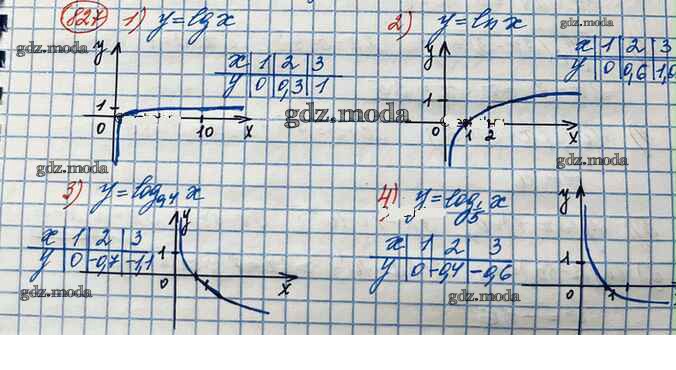 827 1) y = lg x
x | 1 | 2 | 3
y | 0 | 0,3 | 1
y
1
0 10 x
2) y = ln x
x | 1 | 2 | 3
y | 0 | 0,6 |
y
1
0 1 2 x
3) y = log₀,₄ x
x | 1 | 2 | 3
y | 0 | -0,7 | -1,1
y
1
0 1 x
4) y = log₁/₅ x
x | 1 | 2 | 3
y | 0 | -0,4 | -0,6
y
1
0 1 x
gdz.moda
gdz.moda
gdz.moda
gdz.moda
gdz.moda
gdz.moda
gdz.moda
gdz.moda
gdz.moda